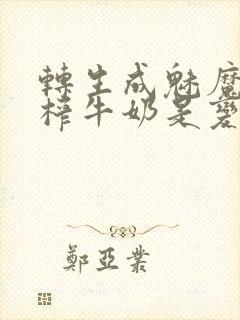 轉生成魅魔
榨牛奶是變
鄭亞業